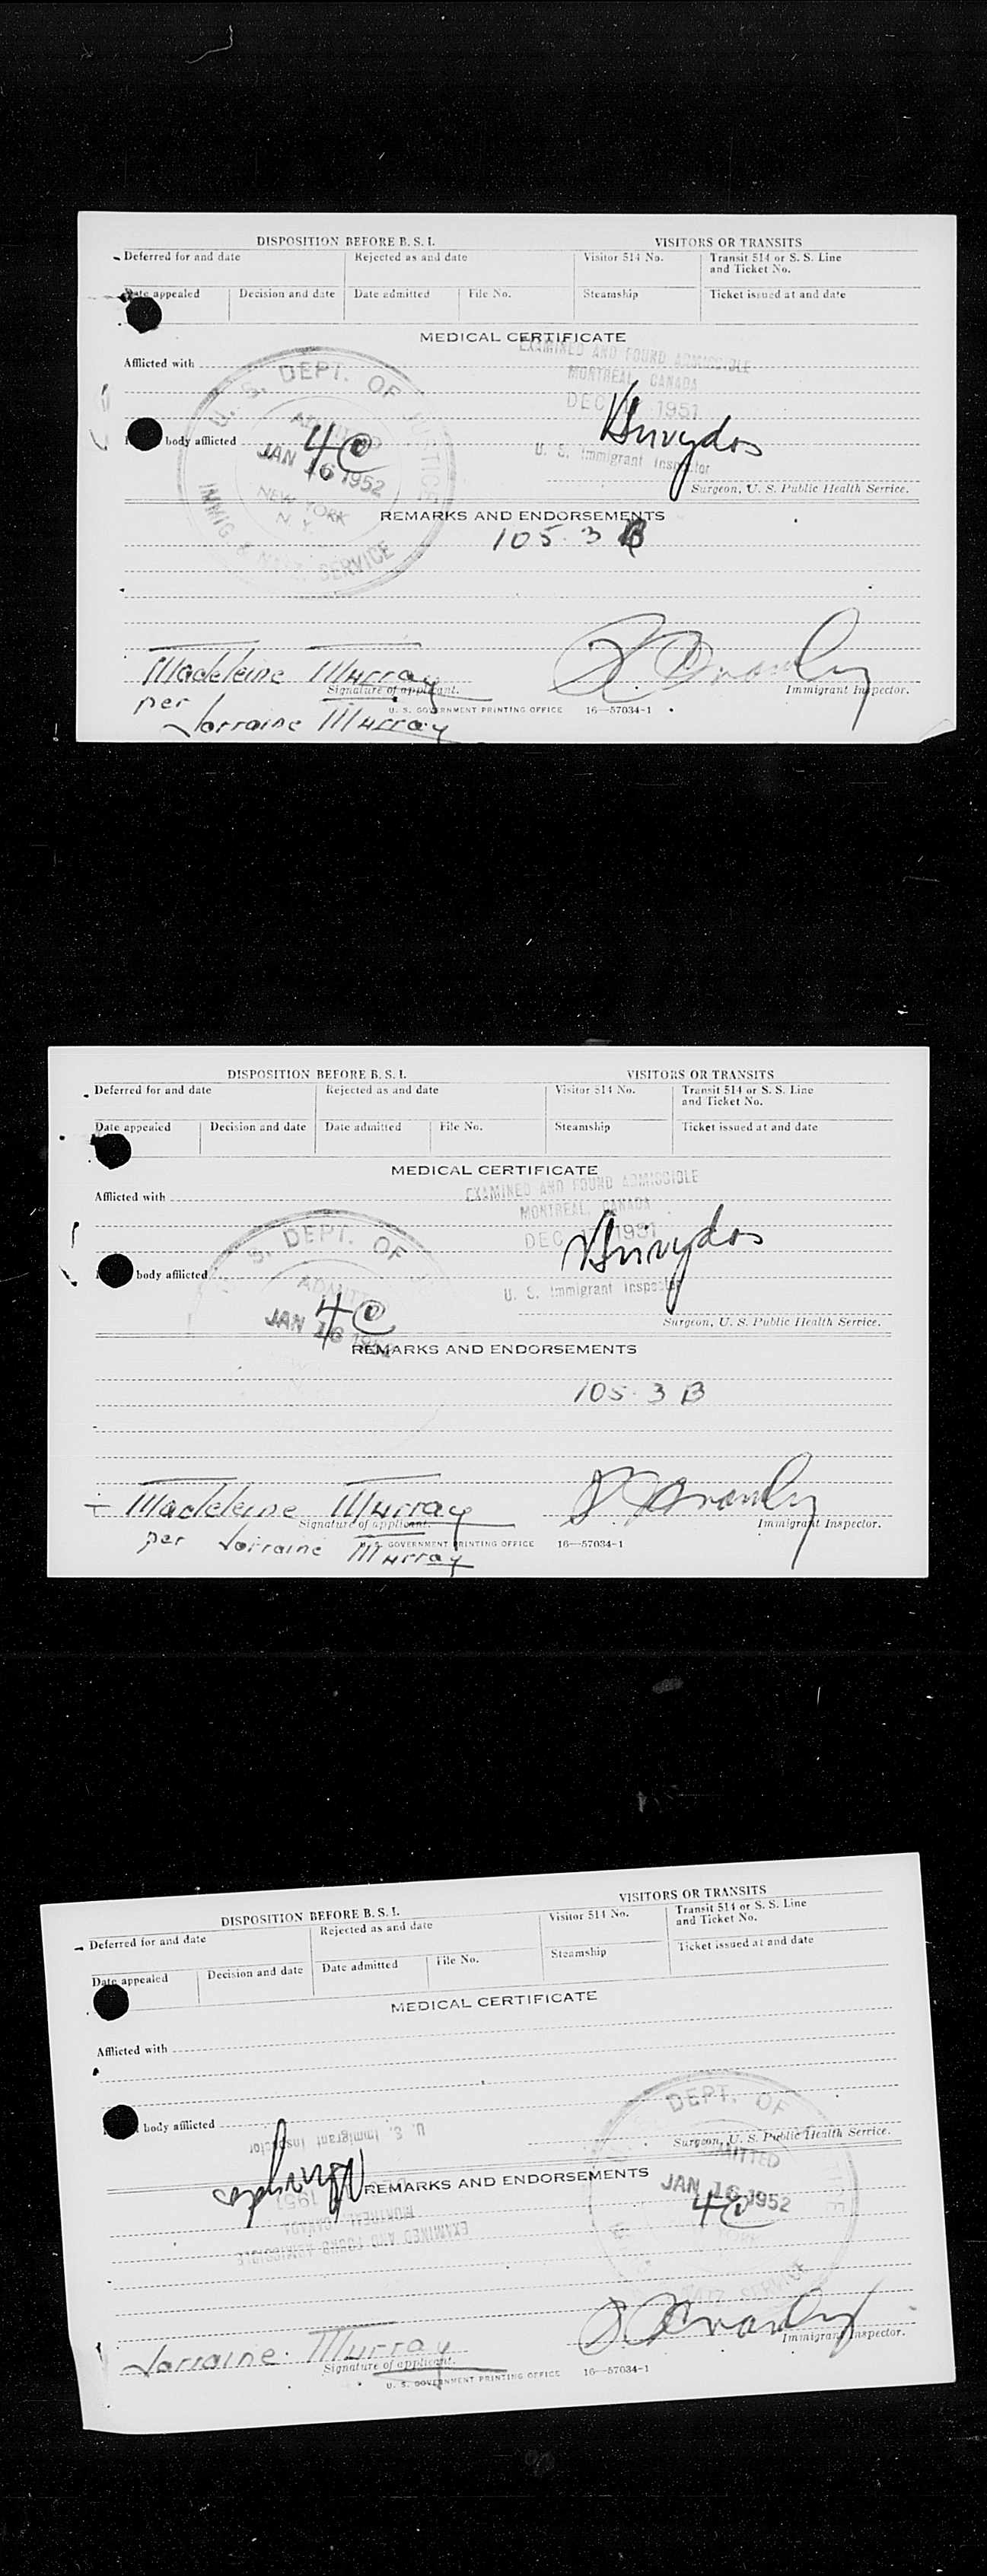 DISPOSITION BEFORE B. S. I. VISITORS OR TRANSITS
Deferred for and date Rejected as and date Visitor 514 No. Transit 514 or S. S. Line
and Ticket No.
Date appealed Decision and date Date admitted File No. Steamship Ticket issued at and date
MEDICAL CERTIFICATE
EXAMINED AND FOUND ADMISSIBLE
Afflicted with
MONTREAL, CANADA
DEC 1951
U. S. DEPT. OF JUSTICE
ADMITTED
body afflicted
4 c
JAN 16 1952
U. S. Immigrant Inspector
Surgeon, U. S. Public Health Service.
NEW YORK
N. Y.
IMMIG & NATZ. SERVICE
REMARKS AND ENDORSEMENTS
105. 3 B
Madeleine Murray
Signature of applicant. Immigrant Inspector.
per
U. S. GOVERNMENT PRINTING OFFICE 16—57034-1
Lorraine Murray
DISPOSITION BEFORE B. S. I. VISITORS OR TRANSITS
Deferred for and date Rejected as and date Visitor 514 No. Transit 514 or S. S. Line
and Ticket No.
Date appealed Decision and date Date admitted File No. Steamship Ticket issued at and date
MEDICAL CERTIFICATE
EXAMINED AND FOUND ADMISSIBLE
Afflicted with
MONTREAL, CANADA
DEC 1951
S. DEPT. OF
body afflicted
ADMITTED
U. S. Immigrant Inspector
4 c
JAN 16 1952
Surgeon, U. S. Public Health Service.
REMARKS AND ENDORSEMENTS
105. 3 B
Madeleine Murray
Signature of applicant. Immigrant Inspector.
per Lorraine Murray
U. S. GOVERNMENT PRINTING OFFICE 16—57034-1
DISPOSITION BEFORE B. S. I. VISITORS OR TRANSITS
Deferred for and date Rejected as and date Visitor 514 No. Transit 514 or S. S. Line
and Ticket No.
Date appealed Decision and date Date admitted File No. Steamship Ticket issued at and date
MEDICAL CERTIFICATE
Afflicted with
DEPT. OF
body afflicted
U. S. Immigrant Inspector
Surgeon, U. S. Public Health Service.
ADMITTED
REMARKS AND ENDORSEMENTS
JAN 16 1952
4 c
1951
MONTREAL, CANADA
EXAMINED AND FOUND ADMISSIBLE
SERVICE
Lorraine Murray
Signature of applicant. Immigrant Inspector.
U. S. GOVERNMENT PRINTING OFFICE 16—57034-1